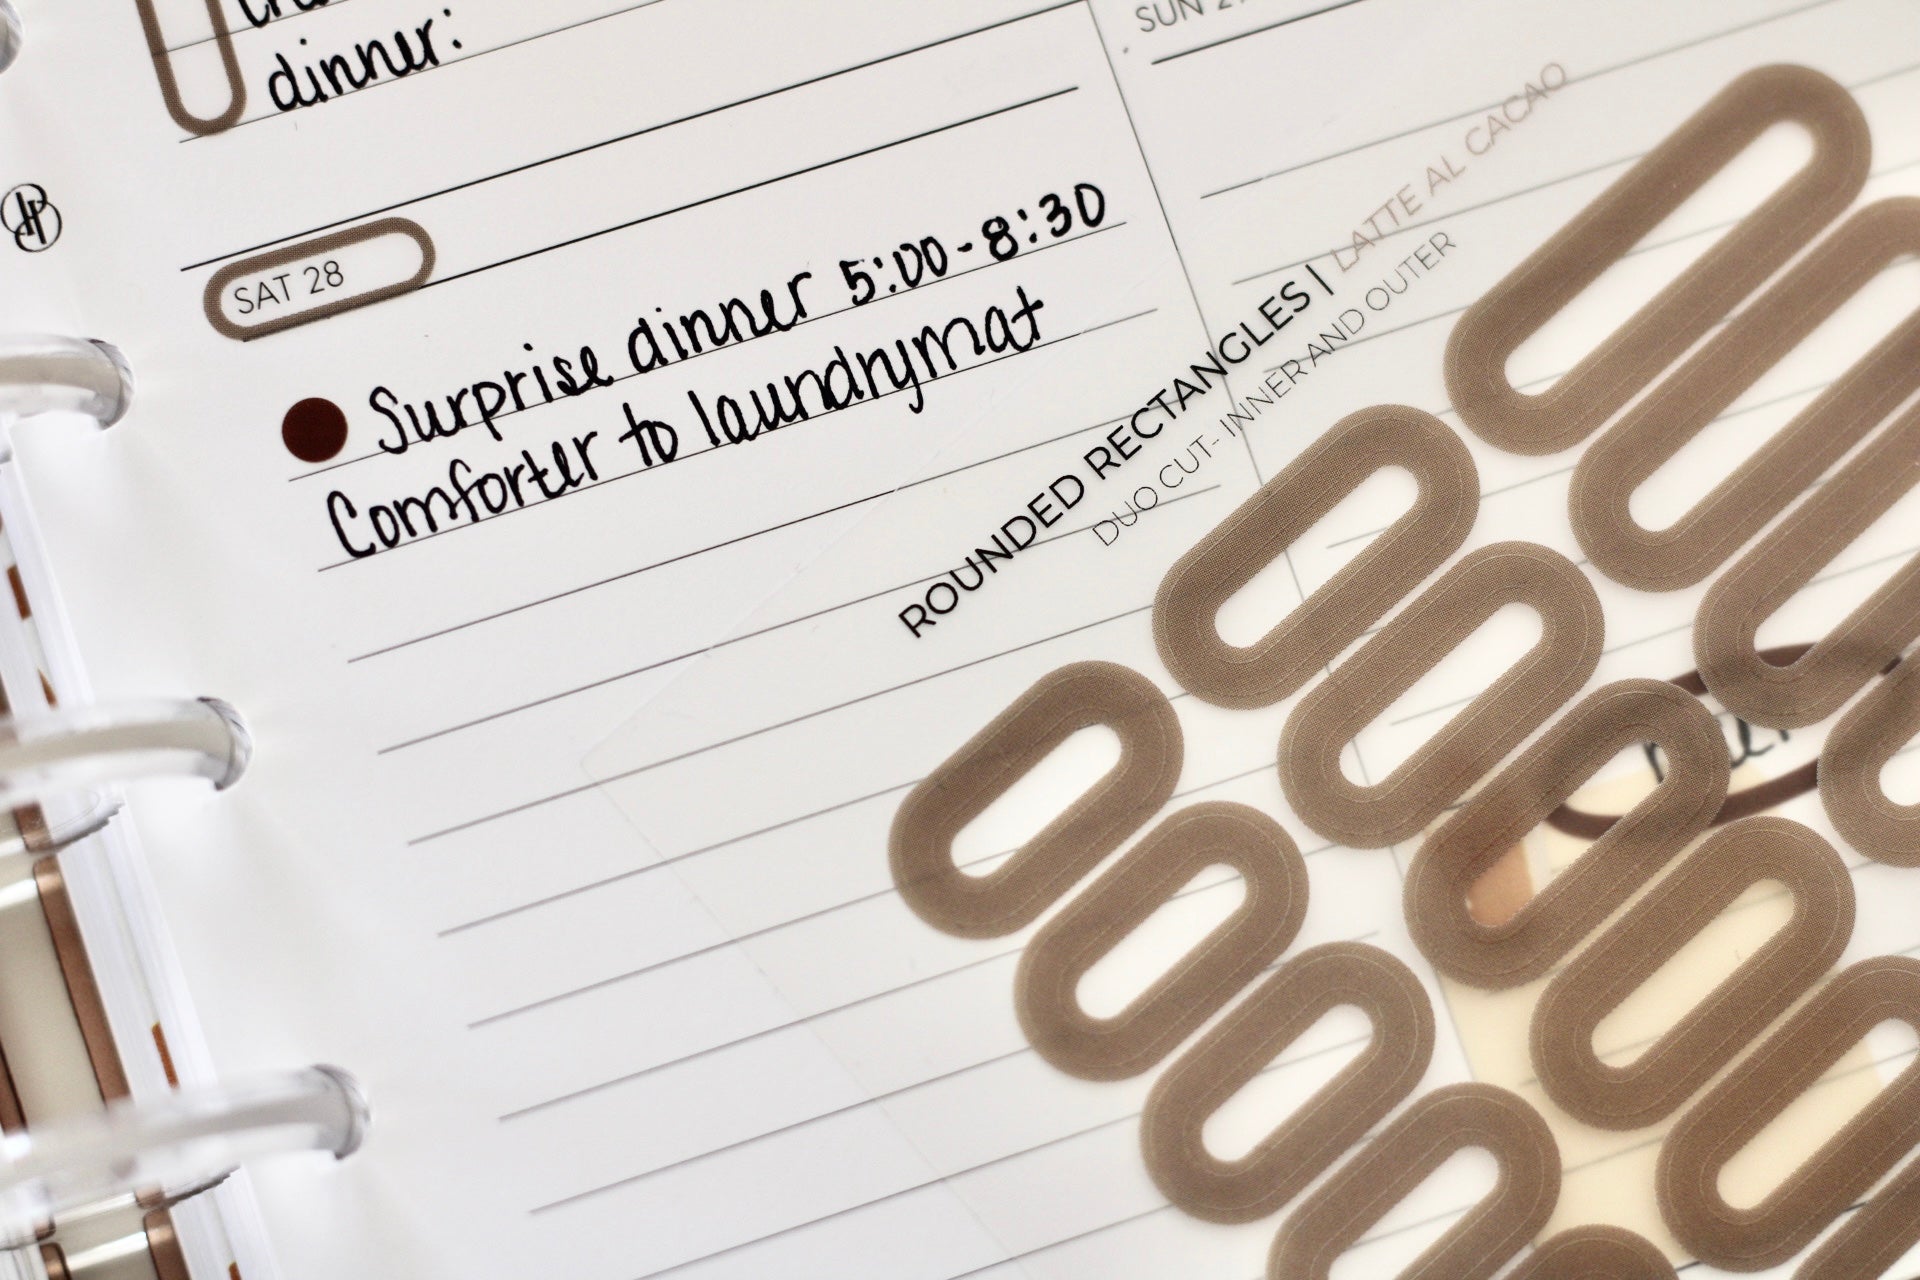 dinner:
SAT 28
Surprise dinner 5:00-8:30
Comforter to laundrymat
SUN
ROUNDED RECTANGLES | LATTE AL CACAO
DUO CUT- INNER AND OUTER